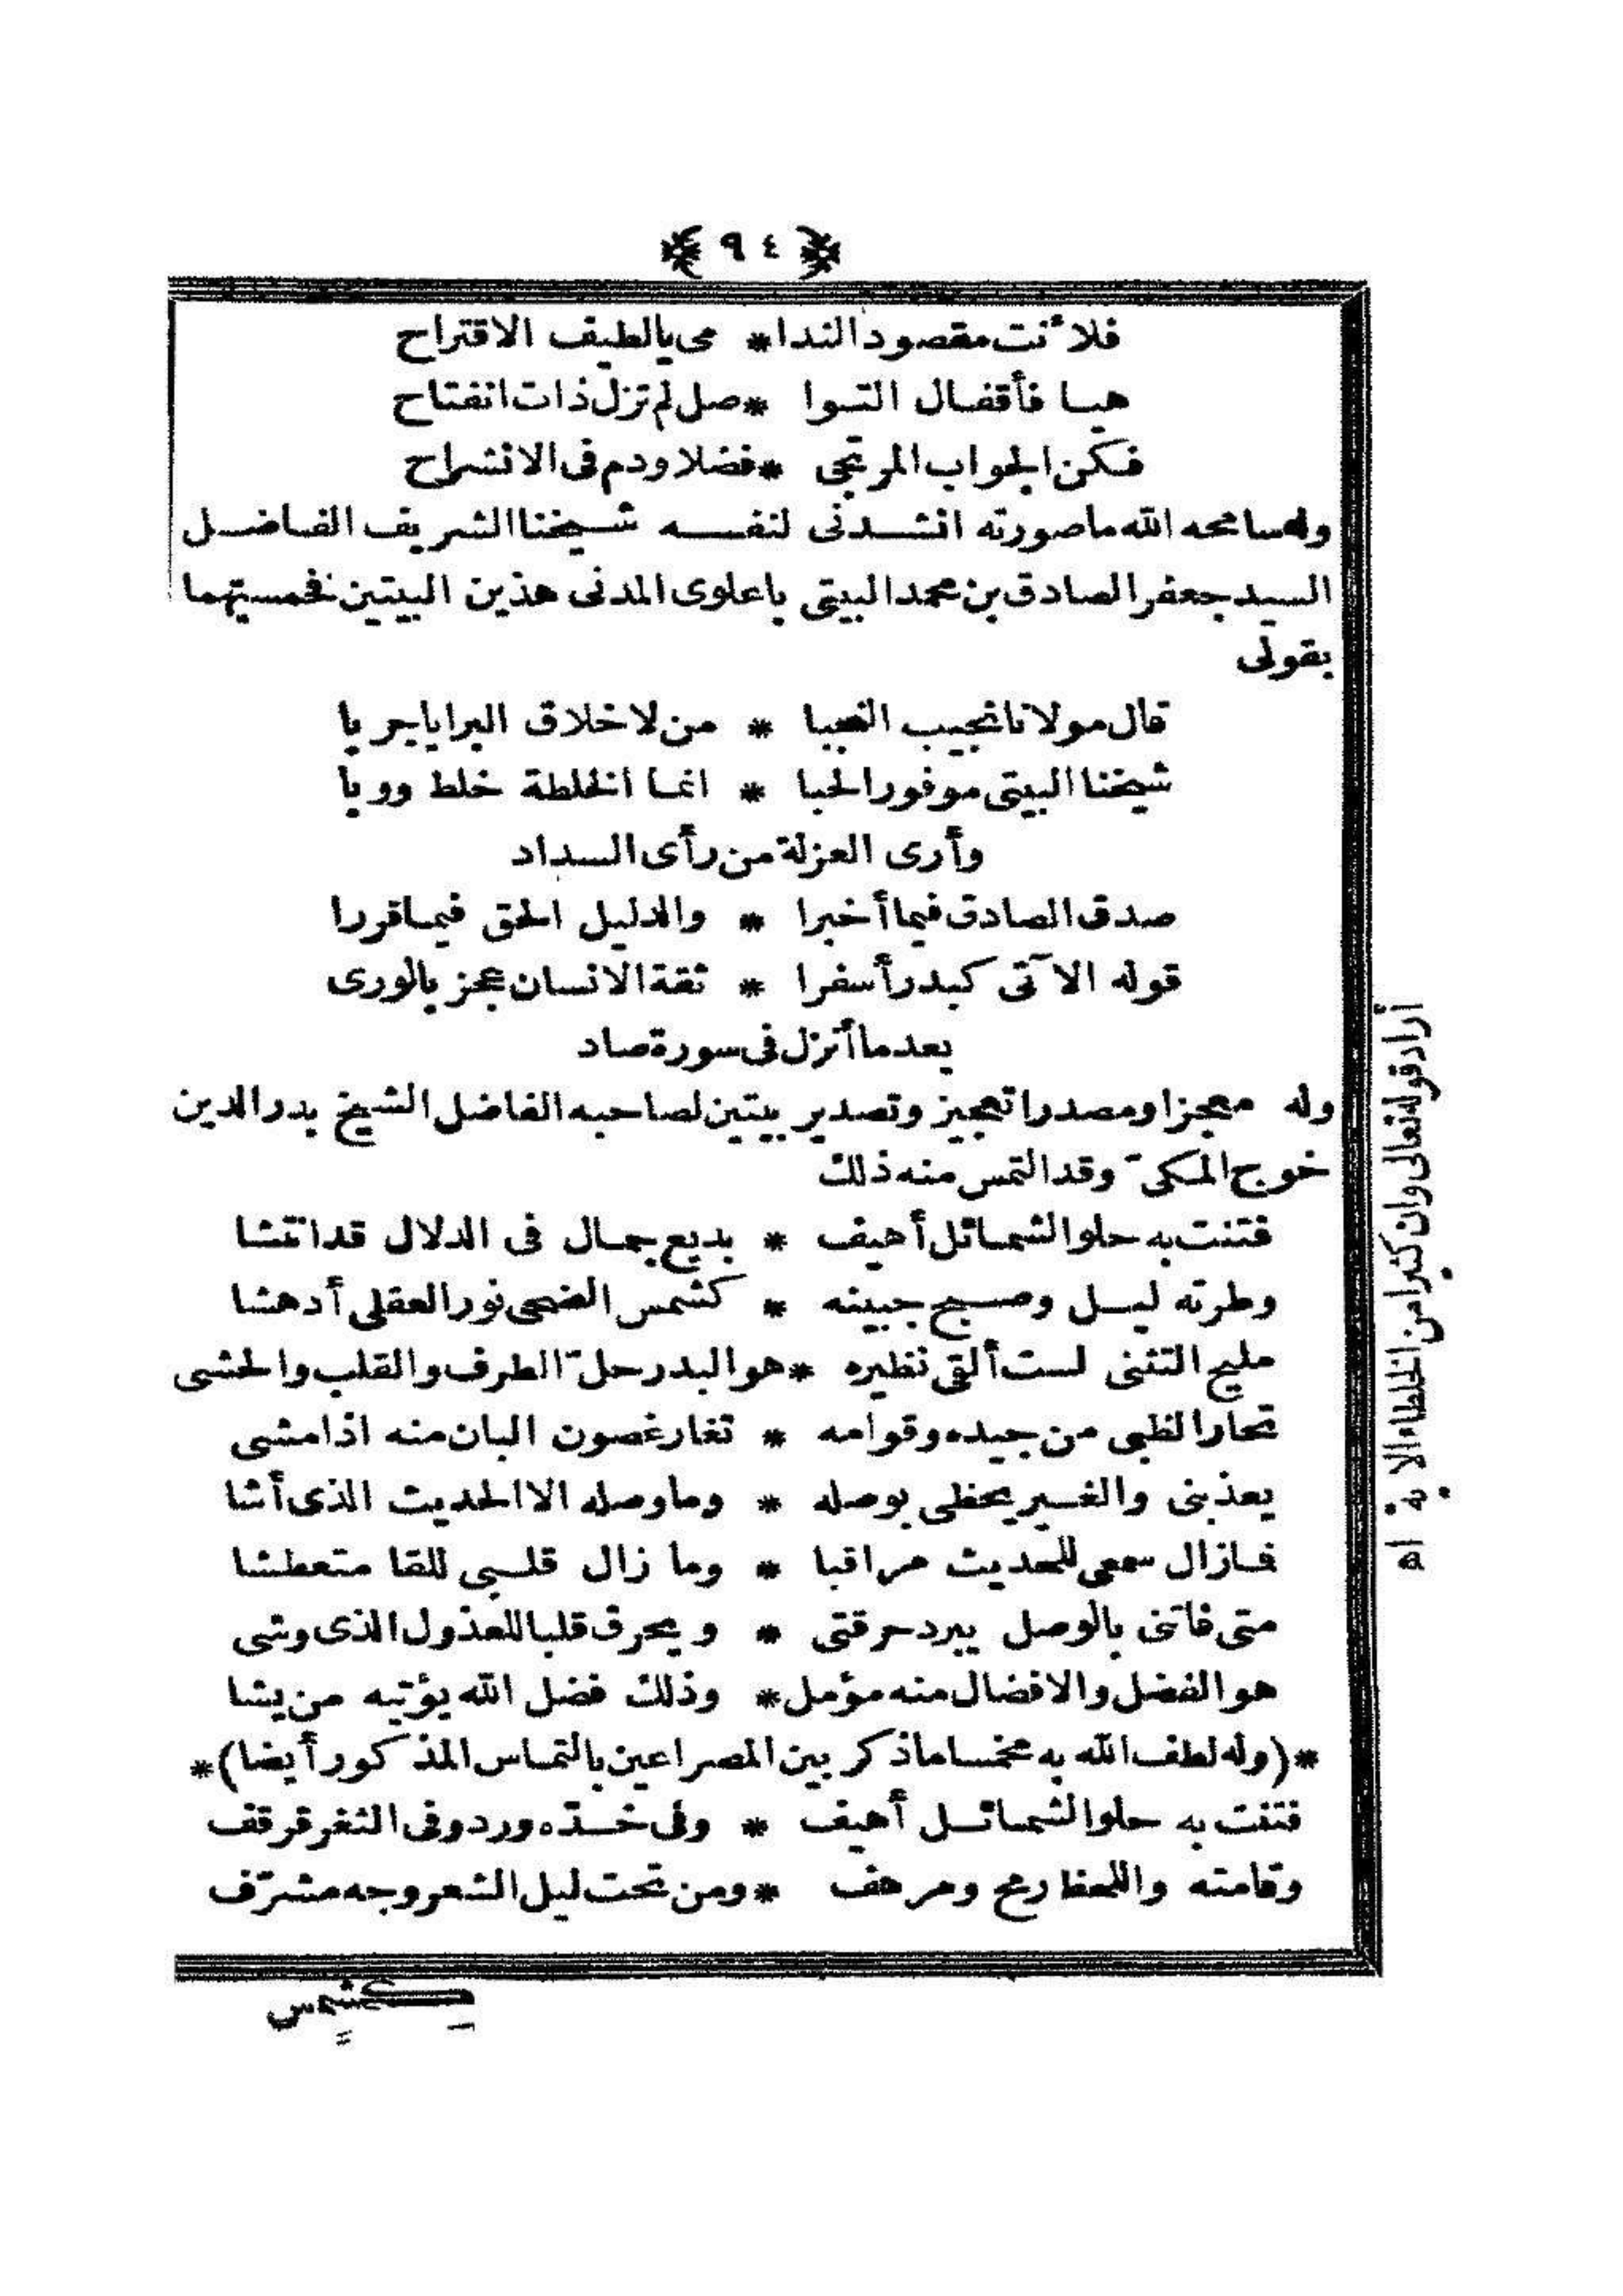 ﴿ ٩٤ ﴾
فلأنت مقصود الندا * مى يا لطيف الاقتراح
هيا فأقفال التوا * صل لم تزل ذات انفتاح
فكن الجواب المرتجى * فضلا ودم فى الانشراح
وله سامحه الله ما صورته انشدنى لنفسه شيخنا الشريف الفاضل
السيد جعفر الصادق بن محمد البيتى باعلوى المدنى هذين البيتين فخمستهما
بقولى
قال مولانا نجيب النجبا * من لاخلاق البرايا جربا
شيخنا البيتى موفور الحبا * انما الخلطة خلط ووبا
وأرى العزلة من رأى السداد
صدق الصادق فيما أخبرا * والدليل الحق فيما قررا
قوله الآتى كبدر أسفرا * ثقة الانسان عجز بالورى
بعد ما أنزل فى سورة صاد
وله معجزا ومصدرا تعجيز وتصدير بيتين لصاحبه الفاضل الشيخ بدر الدين
خوج المكىّ وقد التمس منه ذلك
فتنت به حلو الشمائل أهيف * بديع جمال فى الدلال قد انتشا
وطرته ليل وصبح جبينه * كشمس الضحى نور العقلى أدهشا
مليح التثنى لست ألقى نظيره * هو البدر حلّ الطرف والقلب والحشى
تحار الظبى من جيده وقوامه * تغار غصون البان منه اذا مشى
يعذبنى والغير يحظى بوصله * وما وصله الا الحديث الذى أشا
فما زال سمعى للحديث مراقبا * وما زال قلبى للقا متعطشا
متى فاتنى بالوصل يبرد حرقتى * ويحرق قلبا للعذول الذى وشى
هو الفضل والافضال منه مؤمل * وذلك فضل الله يؤتيه من يشا
* (وله لطف الله به مخمسا ما ذكر بين المصراعين بالتماس المذكور أيضا) *
فتنت به حلو الشمائل أهيف * وفى خدّه ورد وفى الثغر قرقف
وقامته واللحظ رمح ومرهف * ومن تحت ليل الشعر وجه مشرّف
كشمس
أراد قوله تعالى وان كثيرا من الخلطاء الآية اه